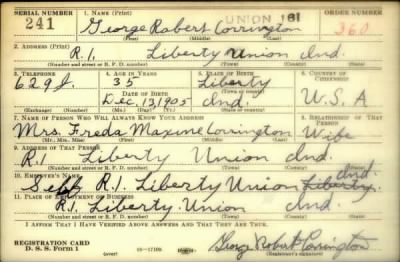 SERIAL NUMBER 1. NAME (Print) UNION 181 ORDER NUMBER
241 George Robert Corrington 360
(First) (Middle) (Last)
2. ADDRESS (Print)
R.1. Liberty Union Ind.
(Number and street or R. F. D. number) (Town) (County) (State)
3. TELEPHONE 4. AGE IN YEARS 5. PLACE OF BIRTH 6. COUNTRY OF CITIZENSHIP
629J. 35 Liberty
DATE OF BIRTH (Town or county)
Dec. 13 1905 Ind. U.S.A
(Exchange) (Number) (Mo.) (Day) (Yr.) (State or country)
7. NAME OF PERSON WHO WILL ALWAYS KNOW YOUR ADDRESS 8. RELATIONSHIP OF THAT PERSON
Mrs. Freda Maxine Corrington Wife
(Mr., Mrs., Miss) (First) (Middle) (Last)
9. ADDRESS OF THAT PERSON
R.1 Liberty Union Ind.
(Number and street or R. F. D. number) (Town) (County) (State)
10. EMPLOYER'S NAME Ind.
Self R.1. Liberty Union Liberty
11. PLACE OF EMPLOYMENT OR BUSINESS
R.1. Liberty Union Ind.
(Number and street or R. F. D. number) (Town) (County) (State)
I AFFIRM THAT I HAVE VERIFIED ABOVE ANSWERS AND THAT THEY ARE TRUE.
REGISTRATION CARD
D. S. S. Form 1 (over) 16—17105 George Robert Corrington
(Registrant's signature)